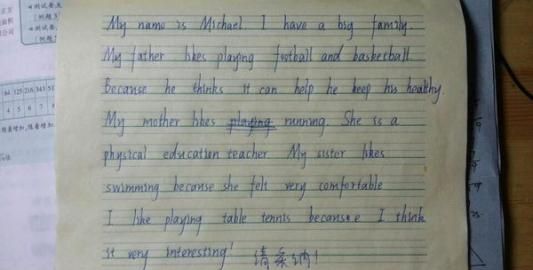 My name is Michael. I have a big family.
My father likes playing football and basketball.
Because he thinks it can help he keep his healthy.
My mother likes playing running. She is a
physical education teacher. My sister likes
swimming because she felt very comfortable
I like playing table tennis because I think
it very interesting! 请采纳!
64 125 216 343 51
4 5 6 7 8